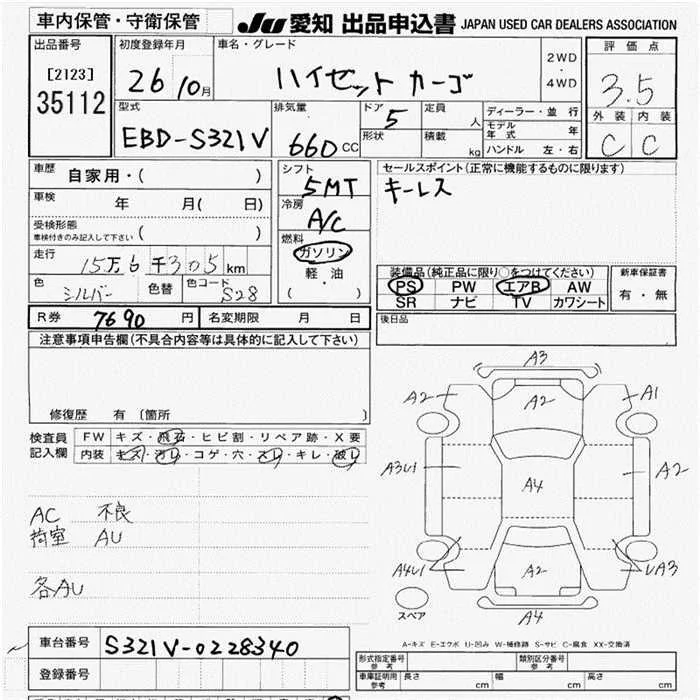 車内保管・守衛保管
JU 愛知 出品申込書 JAPAN USED CAR DEALERS ASSOCIATION
出品番号 初度登録年月 車名・グレード 評価点
[2123]
35112
26 10月
ハイゼット カーゴ
2WD
・
4WD
3.5
型式 排気量 ドア 定員 人 ディーラー・並行
EBD-S321V 660 CC 5
モデル年式 年
形状 積載 kg ハンドル 左・右
外装 内装
C C
車歴 自家用・( )
シフト 5MT
セールスポイント(正常に機能するものに限ります)
キーレス
車検 年 月( 日)
冷房 A/C
受検形態
車検付きのみ記入して下さい ( )
燃料 ガソリン
軽・油
( ・ )
走行 15万6千305km
色 シルバー 色替 色コード S28
装備品(純正品に限り○をつけてください) 新車保証書
PS PW エアB AW 有・無
SR ナビ TV カワシート
R券 7690 円 名変期限 月 日
後日品
注意事項申告欄(不具合内容等は具体的に記入して下さい)
修復歴 有〔箇所 〕
検査員 FW キズ・飛石・ヒビ割・リペア跡・X要
記入欄 内装 キズ・汚レ・コゲ・穴・スレ・キレ・破レ
AC 不良
荷室 AU
各AU
A3
A2 A2 A1
A3U1 A4 A2
A4U1 A2 UA3
スペア A4
A-キズ E-エクボ U-凹み W-補修跡 S-サビ C-腐食 XX-交換済
車台番号 S321V-0228340
登録番号
形式指定番号 参考 類別区分番号 参考
車庫証明用 参考 長さ cm 幅 cm 高さ cm